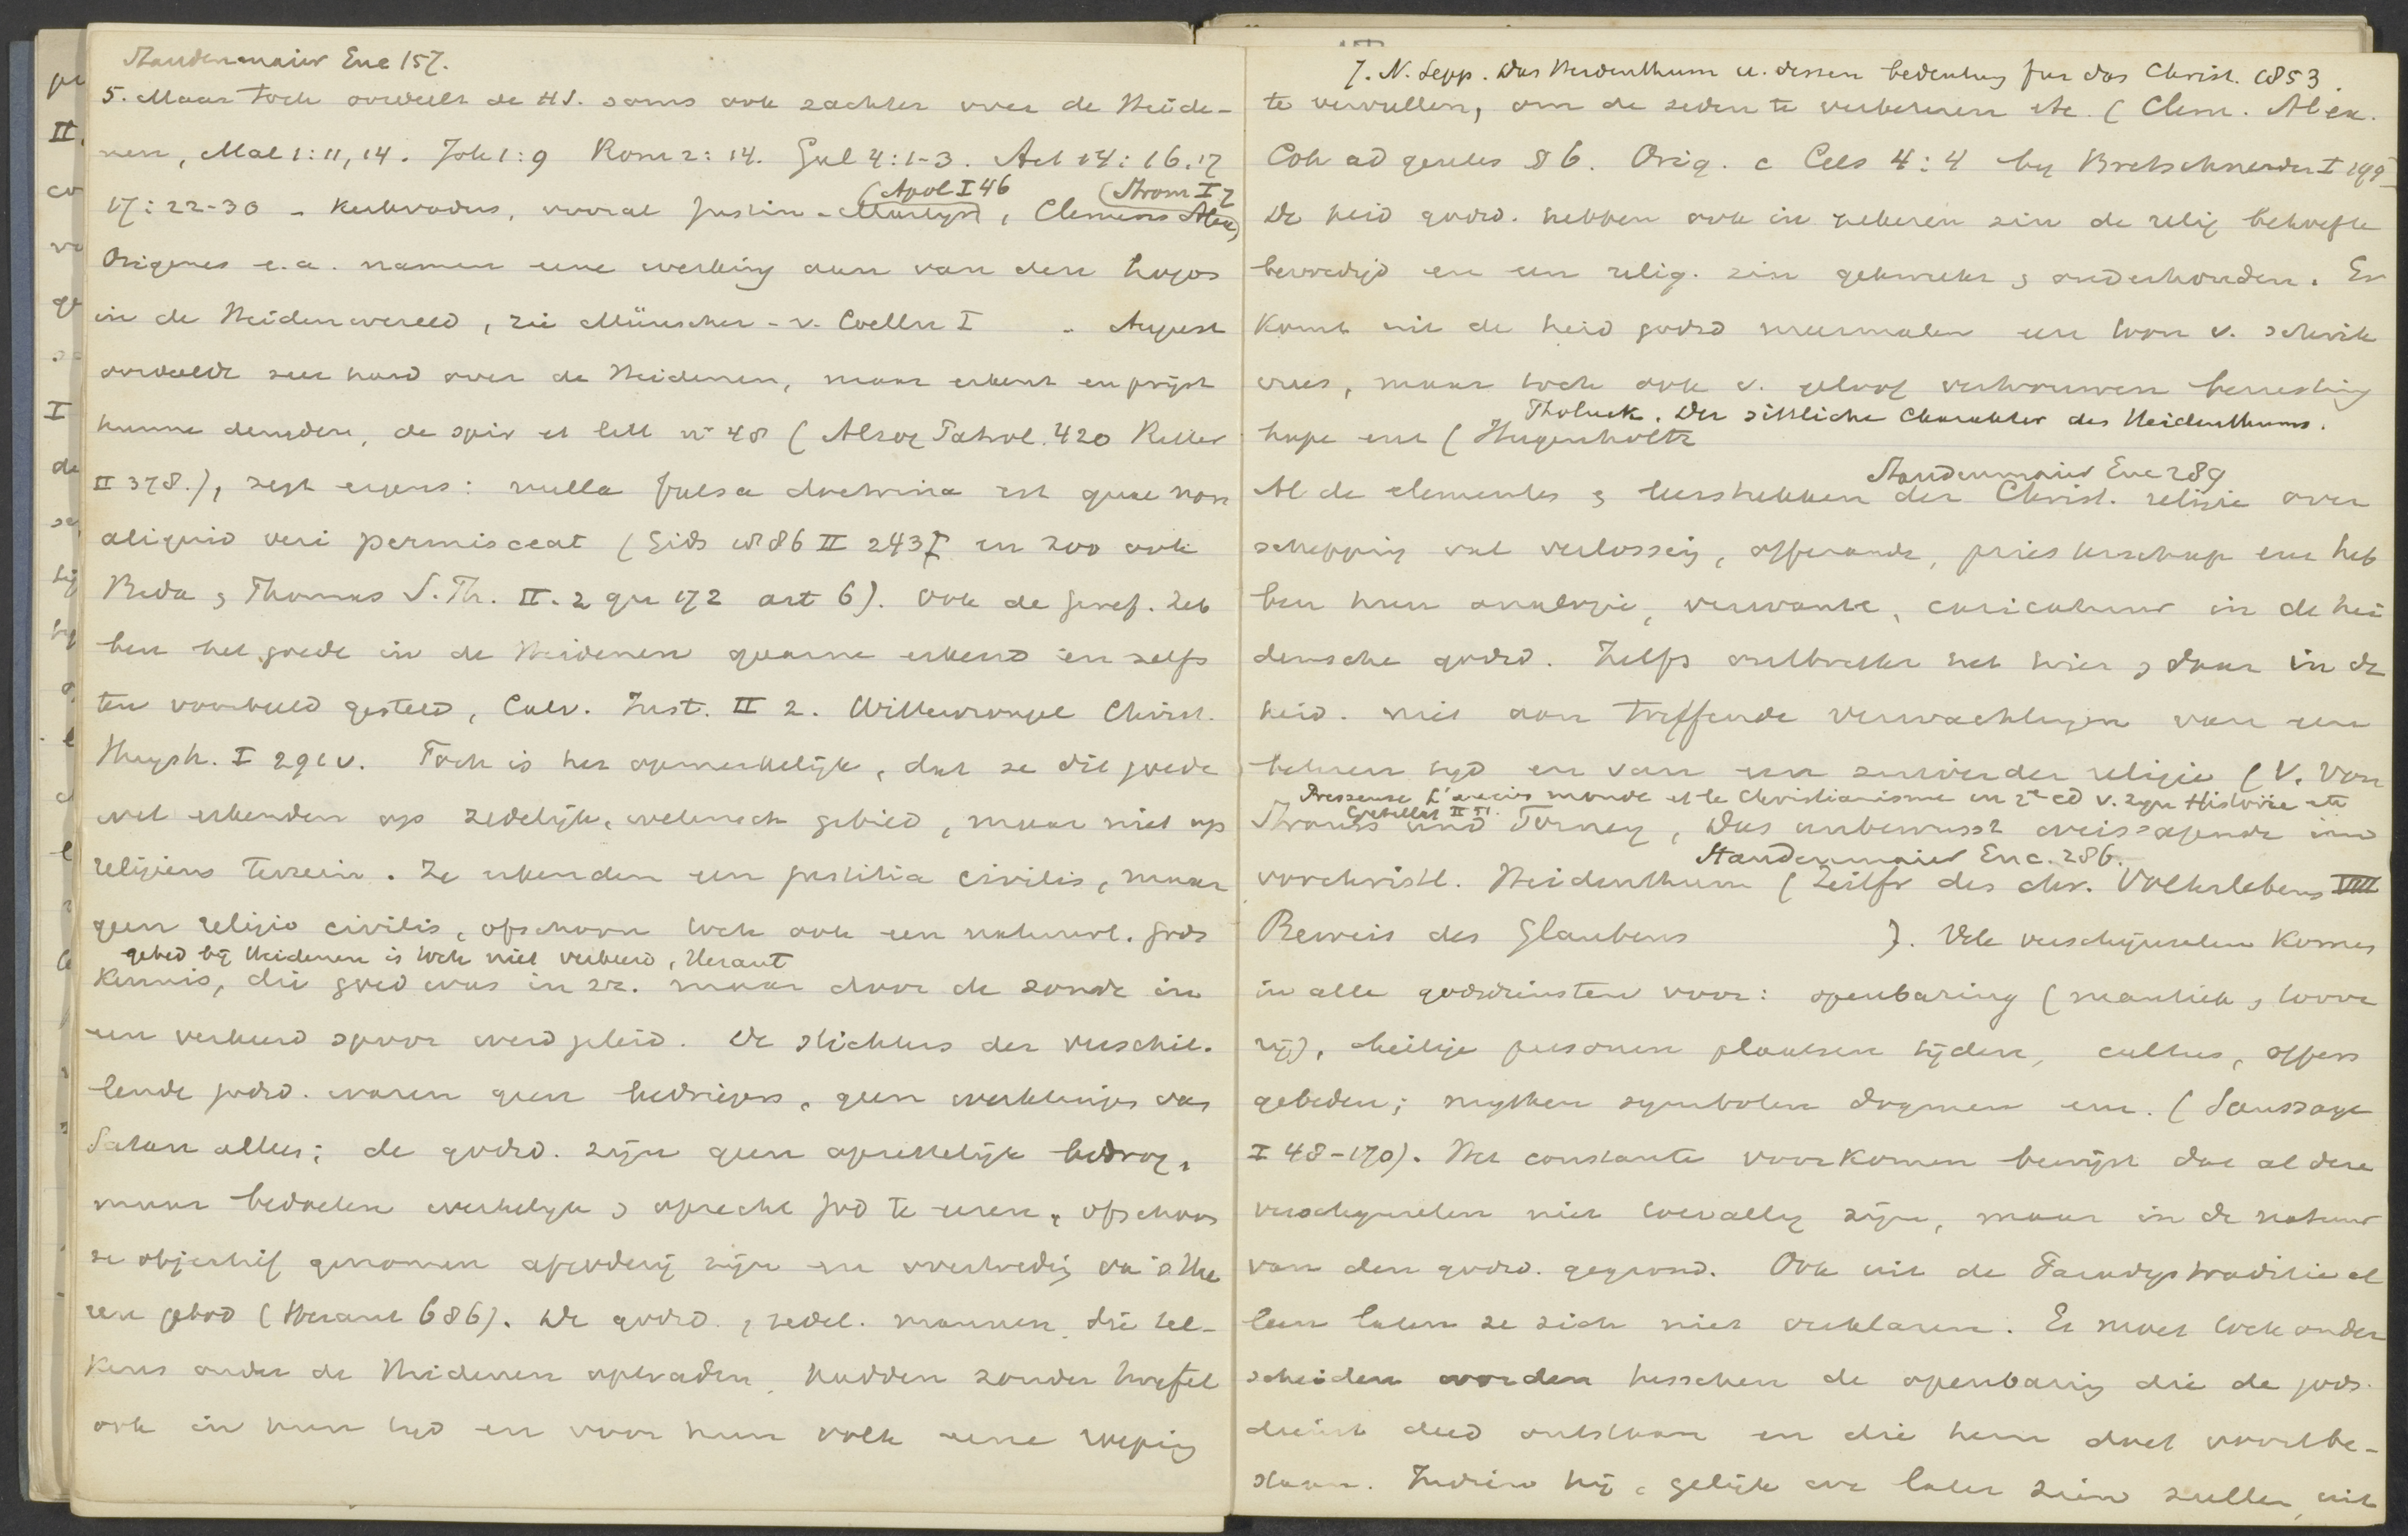 Staudenmaier Enc 157.
5. Maar toch oordeelt de H.S. soms ook zachter over de Heide-
nen, Mal 1:11, 14. Joh 1:9 Rom 2:14. Gal 4:1-3. Act 14:16.17
(Apol I 46 (Strom I 7
17:22-30 - Kerkvaders, vooral Justin-Martyr, Clemens Alex)
Origenes e.a. namen eene werking aan van den Logos
in de Heidenwereld, zie Münscher-v. Coelln I - August
oordeelde zeer hard over de Heidenen, maar erkent en prijst
hunne deugden, de spir et litt n° 48 (Alzog Patrol. 420 Reuter
II 378.), zegt ergens: nulla falsa doctrina est quae non
aliquid veri permisceat (Gids 1886 II 243 en zoo ook
Beda, Thomas S. Th. II. 2 qu 172 art 6). Ook de Geref. heb
ben het goede in de Heidenen gaarne erkend en zelfs
ten voorbeeld gesteld, Calv. Inst. II 2. Wittewrongel Christ.
Huysh. I 291 v. Toch is het opmerkelijk, dat ze dit goede
wel erkenden op zedelijk, wetensch gebied, maar niet op
religieus terrein. Ze erkenden een justitia civilis, maar
geen religio civilis, ofschoon toch ook een natuurl. gods
gebed bij Heidenen is toch niet verkeerd, Heraut
kennis, die goed was in zr. maar door de zonde in
een verkeerd spoor werd geleid. De stichters der verschil-
lende godsd. waren geen bedriegers, geen werktuigen van
Satan alleen; de godsd. zijn geen opzettelijk bedrog,
maar bedoelen werkelijk & oprecht God te eeren, ofschoon
ze objectief genomen afgoderij zijn en overtreding van 's Hee
ren gebod (Heraut 686). De godsd., zedel. mannen, die tel-
kens onder de Heidenen optraden, hadden zonder twijfel
ook in hun tijd en voor hun volk eene roeping
J. N. Sepp. Das Heidenthum u. dessen bedeutung fur das Christ. 1853.
te vervullen, om de zeden te verbeteren etc. (Clem. Alex.
Coh ad gentes § 6. Orig. c Cels 4:4 by Bretschneider I 199
De heid godsd. hebben ook in zekeren zin de relig behoefte
bevredigd en een relig. zin gekweekt & onderhouden. Er
komt uit de heid godsd meermalen een toon v. schrik
vrees, maar toch ook v. geloof vertrouwen berusting
Tholuck. Der sittliche Charakter des Heidenthums.
hope enz (Hugenholtz
Staudenmaier Enc 289
Al de elementen & leerstukken der Christ. religie over
schepping val verlossing, offerande, priesterschap enz heb
ben hun analogie, verwante, caricatuur in de hei
densche godsd. Zelfs ontbreekt het hier & daar in de
heid. niet aan treffende verwachtingen van een
beteren tijd en van een zuiverder religie (V. Von
Pressense L'ancien monde et le Christianisme in 2e ed v. zyn Histoire etc
Strauss und Torney, Das unbewusst weissagende im
Staudenmaier Enc. 286.
vorchristl. Heidenthum (Zeitfr des chr. Volkslebens VIII
Beweis des Glaubens ). Vele verschijnselen komen
in alle godsdiensten voor: openbaring (mantiek, toove
rij), heilige personen plaatsen tijden, cultus, offers
gebeden; mythen symbolen dogmen enz. (Saussaye
I 48-170). Het constante voorkomen bewijst dat al deze
verschijnselen niet toevallig zijn, maar in de natuur
van den godsd. gegrond. Ook uit de Paradystraditie al
leen laten ze zich niet verklaren. Er moet toch onder
scheiden worden tusschen de openbaring die de gods-
dienst deed ontstaan en die hem doet voortbe-
staan. Indien hij, gelijk we later zien zullen, uit